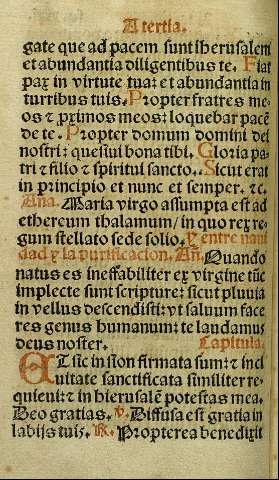 A tertia.
gate que ad pacem sunt iherusalem
et abundantia diligentibus te. Fiat
pax in virtute tua: et abundantia in
turribus tuis. Propter fratres me
os ⁊ p̄ximos meos: loquebar pacē
de te. Propter domum domini dei
nostri: quesiui bona tibi. Gloria pa
tri ⁊ filio ⁊ spiritui sancto.. Sicut erat
in principio et nunc et semper. ⁊c.
Aña. Maria virgo assumpta est ad
ethereum thalamum / in quo rex re
gum stellato sede solio. Y entre naui
dad y la purificacion. Añ. Quando
natus es ineffabiliter ex virgine tūc
implecte sunt scripture: sicut pluuia
in vellus descendisti: vt saluum face
res genus humanum: te laudamus
deus noster. Capitula.
ET sic in sion firmata sum: ⁊ in ci
uitate sanctificata similiter re-
quieui: ⁊ in hierusalē potestas mea.
Deo gratias. ℣. Diffusa est gratia in
labijs tuis. ℟. Propterea benedixit